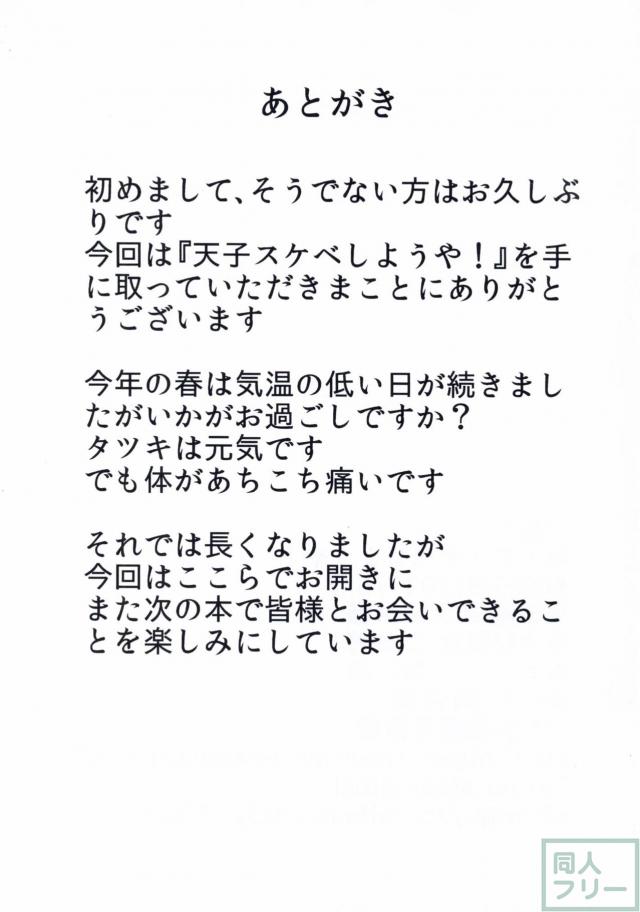 あとがき
初めまして、そうでない方はお久しぶ
りです
今回は『天子スケベしようや！』を手
に取っていただきまことにありがと
うございます
今年の春は気温の低い日が続きまし
たがいかがお過ごしですか？
タツキは元気です
でも体があちこち痛いです
それでは長くなりましたが
今回はここらでお開きに
また次の本で皆様とお会いできるこ
とを楽しみにしています
同人
フリー